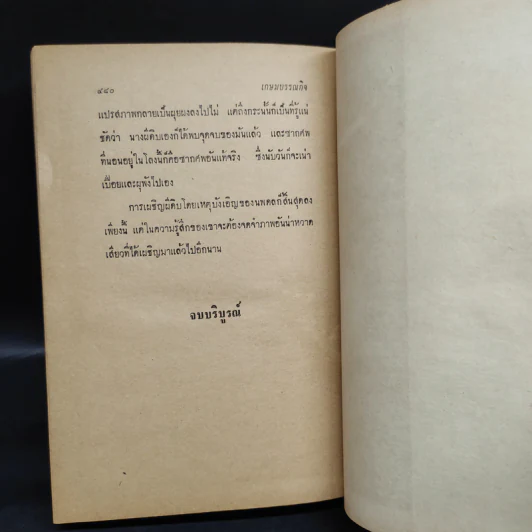 ๔๔๐
เกษมบรรณกิจ
แปรสภาพกลายเป็นผุยผงลงไปไม่ แต่ถึงกระนั้นก็เป็นที่รู้แน่
ชัดว่า นางผีดิบเองก็ได้พบจุดจบของมันแล้ว และซากศพ
ที่นอนอยู่ในโลงนั้ก็คือซากศพอันแท้จริง ซึ่งนับวันก็จะเน่า
เปื่อยและผุพังไปเอง
การเผชิญผีดิบโดยเหตุบังเอิญของนพดลก็สิ้นสุดลง
เพียงนี้ แต่ในความรู้สึกของเขาจะต้องจดจำภาพอันน่าหวาด
เสียวที่ได้เผชิญมาแล้วไปอีกนาน
จบบริบูรณ์